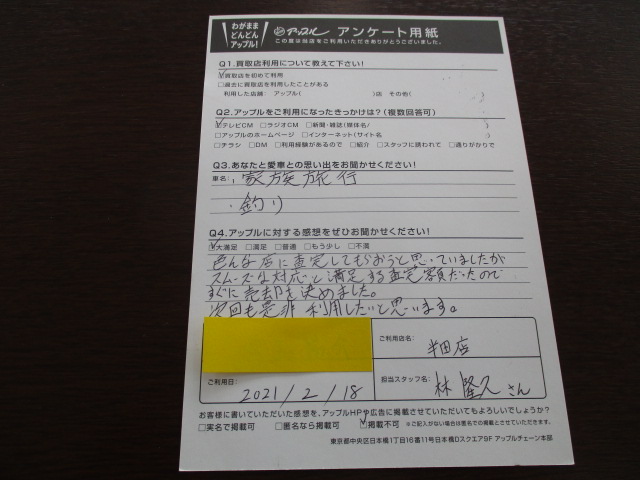 わがまま
どんどん
アップル!
アップル アンケート用紙
この度は当店をご利用いただきありがとうございました。
Q1.買取店利用について教えて下さい!
☑買取店を初めて利用
□過去に買取店を利用したことがある
利用した店舗: アップル( )店 その他( )
Q2.アップルをご利用になったきっかけは?(複数回答可)
☑テレビCM □ラジオCM □新聞・雑誌(媒体名/ )
□アップルのホームページ □インターネット(サイト名 )
□チラシ □DM □利用経験があるので □紹介 □スタッフに誘われて □通りがかりで
Q3.あなたと愛車との思い出をお聞かせください!
車名: ・家族旅行
・釣り
Q4.アップルに対する感想をぜひお聞かせください!
☑大満足 □満足 □普通 □もう少し □不満
色んな店に査定してもらおうと思っていましたが
スムーズな対応と満足する査定額だったので
すぐに売却を決めました。
次回も是非利用したいと思います。
ご利用店名:
半田店
ご利用日: 2021/2/18
担当スタッフ名: 林 隆久さん
お客様に書いていただいた感想を、アップルHPや広告に掲載させていただいてもよろしいでしょうか?
□実名で掲載可 □匿名なら掲載可 ☑掲載不可 ※ご記入がない場合は匿名での掲載とさせていただきます。
東京都中央区日本橋1丁目16番11号日本橋Dスクエア9F アップルチェーン本部